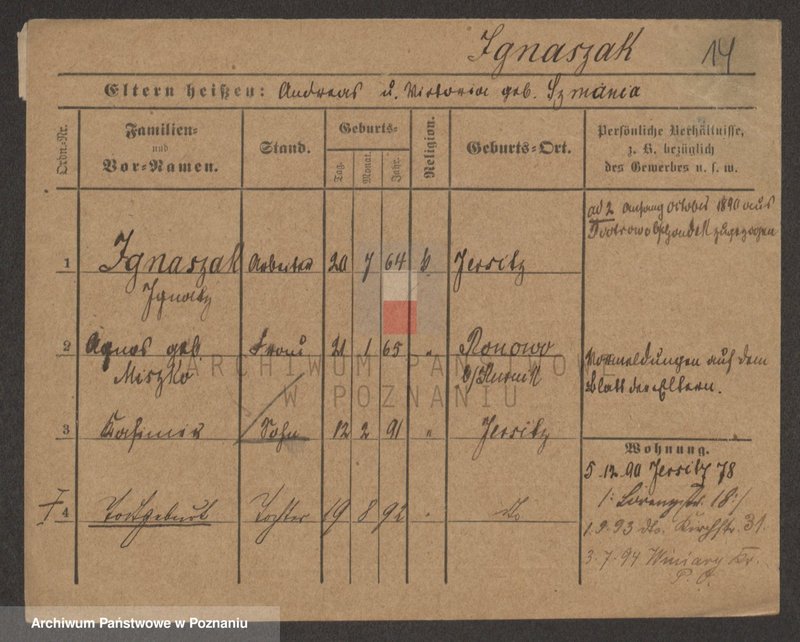 Ignaszak
14
Eltern heißen: Andreas u. Victoria geb. Szmánia
Ordn-Nr.
Familien-
und
Vor-Namen.
Stand.
Geburts-
Tag.
Monat.
Jahr.
Religion.
Geburts-Ort.
Persönliche Verhältnisse,
z. B. bezüglich
des Gewerbes u. s. w.
ad 2 Anfang October 1890 aus
zugezogen
1 Ignaszak Arbeiter 20 7 64 k. Jersitz
Ignatz
2 Agnes geb. Frau 21 1 65 " Ronowo
Miszko b/Kurnik
Vormeldungen auf dem
Blatt der Eltern.
3 Kasimir Sohn 12 2 91 " Jersitz
Wohnung.
5.12.90 Jersitz 78
4 Todtgeburt Tochter 19 8 92 " do
1.9.93 do. Kirchstr. 31.
3.7.94 Winiary Kr.
P. O.
ARCHIWUM PAŃSTWOWE
W POZNANIU
Archiwum Państwowe w Poznaniu